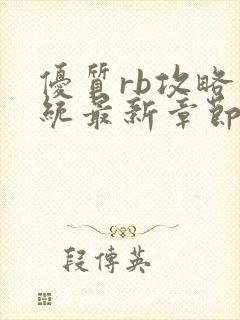 優質rb攻略
統最新章節
段傳英